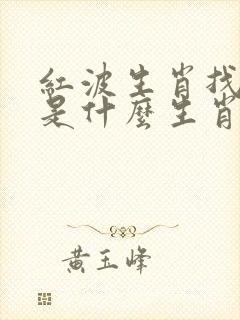 紅波生肖找
是什麼生肖
黄玉峰